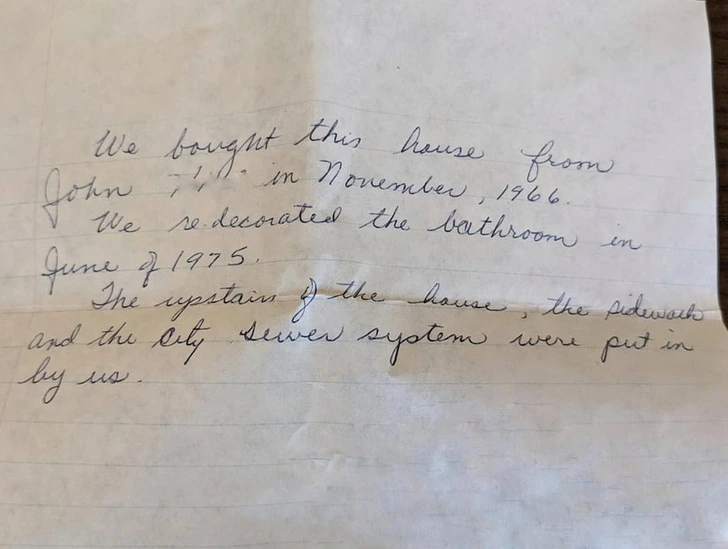 We bought this house from
John in November, 1966.
We re-decorated the bathroom in
June of 1975.
The upstairs of the house, the sidewalk
and the city sewer system were put in
by us.